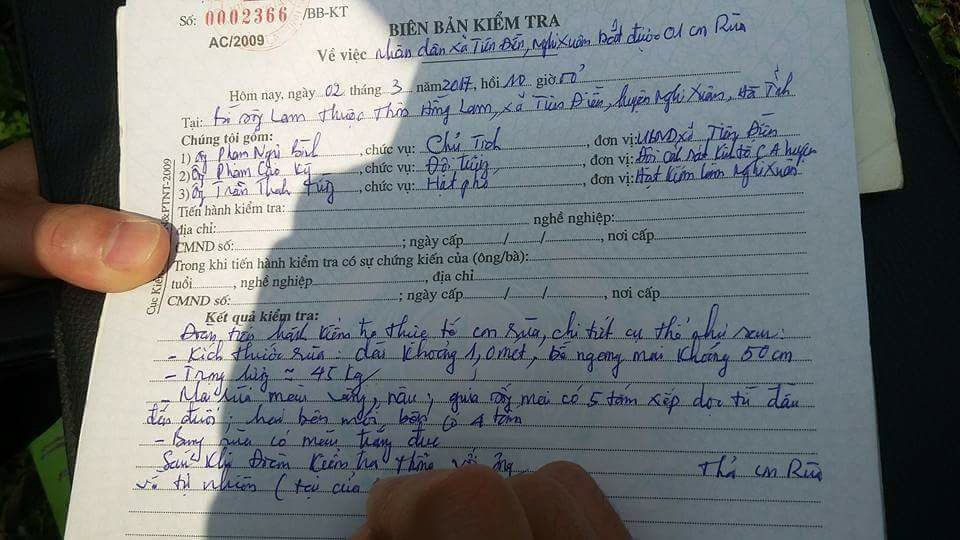 Số: 0002366 /BB-KT
AC/2009
BIÊN BẢN KIỂM TRA
Về việc nhân dân xã Tiên Điền, Nghi Xuân bắt được 01 con Rùa
Hôm nay, ngày 02 tháng 3 năm 2017, hồi 10 giờ 00'
Tại: bờ sông Lam thuộc Thôn Hồng Lam, xã Tiên Điền, huyện Nghi Xuân, Hà Tĩnh
Chúng tôi gồm:
1) ông Phạm Ngọc , chức vụ: Chủ Tịch , đơn vị: UBND xã Tiên Điền
2) ông Phạm Kỳ , chức vụ: Đội trưởng , đơn vị: Đội cảnh sát kinh tế CA huyện
3) ông Trần Thanh , chức vụ: Hạt phó , đơn vị: Hạt Kiểm lâm Nghi Xuân
Tiến hành kiểm tra: nghề nghiệp:
địa chỉ:
CMND số: ; ngày cấp / / , nơi cấp
Trong khi tiến hành kiểm tra có sự chứng kiến của (ông/bà):
tuổi , nghề nghiệp , địa chỉ
CMND số: ; ngày cấp / / , nơi cấp
Kết quả kiểm tra:
Đoàn tiến hành kiểm tra thực tế con rùa, chi tiết cụ thể như sau:
- Kích thước rùa: dài khoảng 1,0 mét, bề ngang mai khoảng 50 cm
- Trọng lượng ≈ 45 kg
- Mai rùa màu vàng, nâu; giữa sống mai có 5 tấm xếp dọc từ đầu
đến đuôi; hai bên mỗi bên có 4 tấm
- Bụng rùa có màu trắng đục
Sau khi Đoàn kiểm tra thống Thả con Rùa
về tự nhiên (tại cửa
Cục Kiể &PTNT-2009